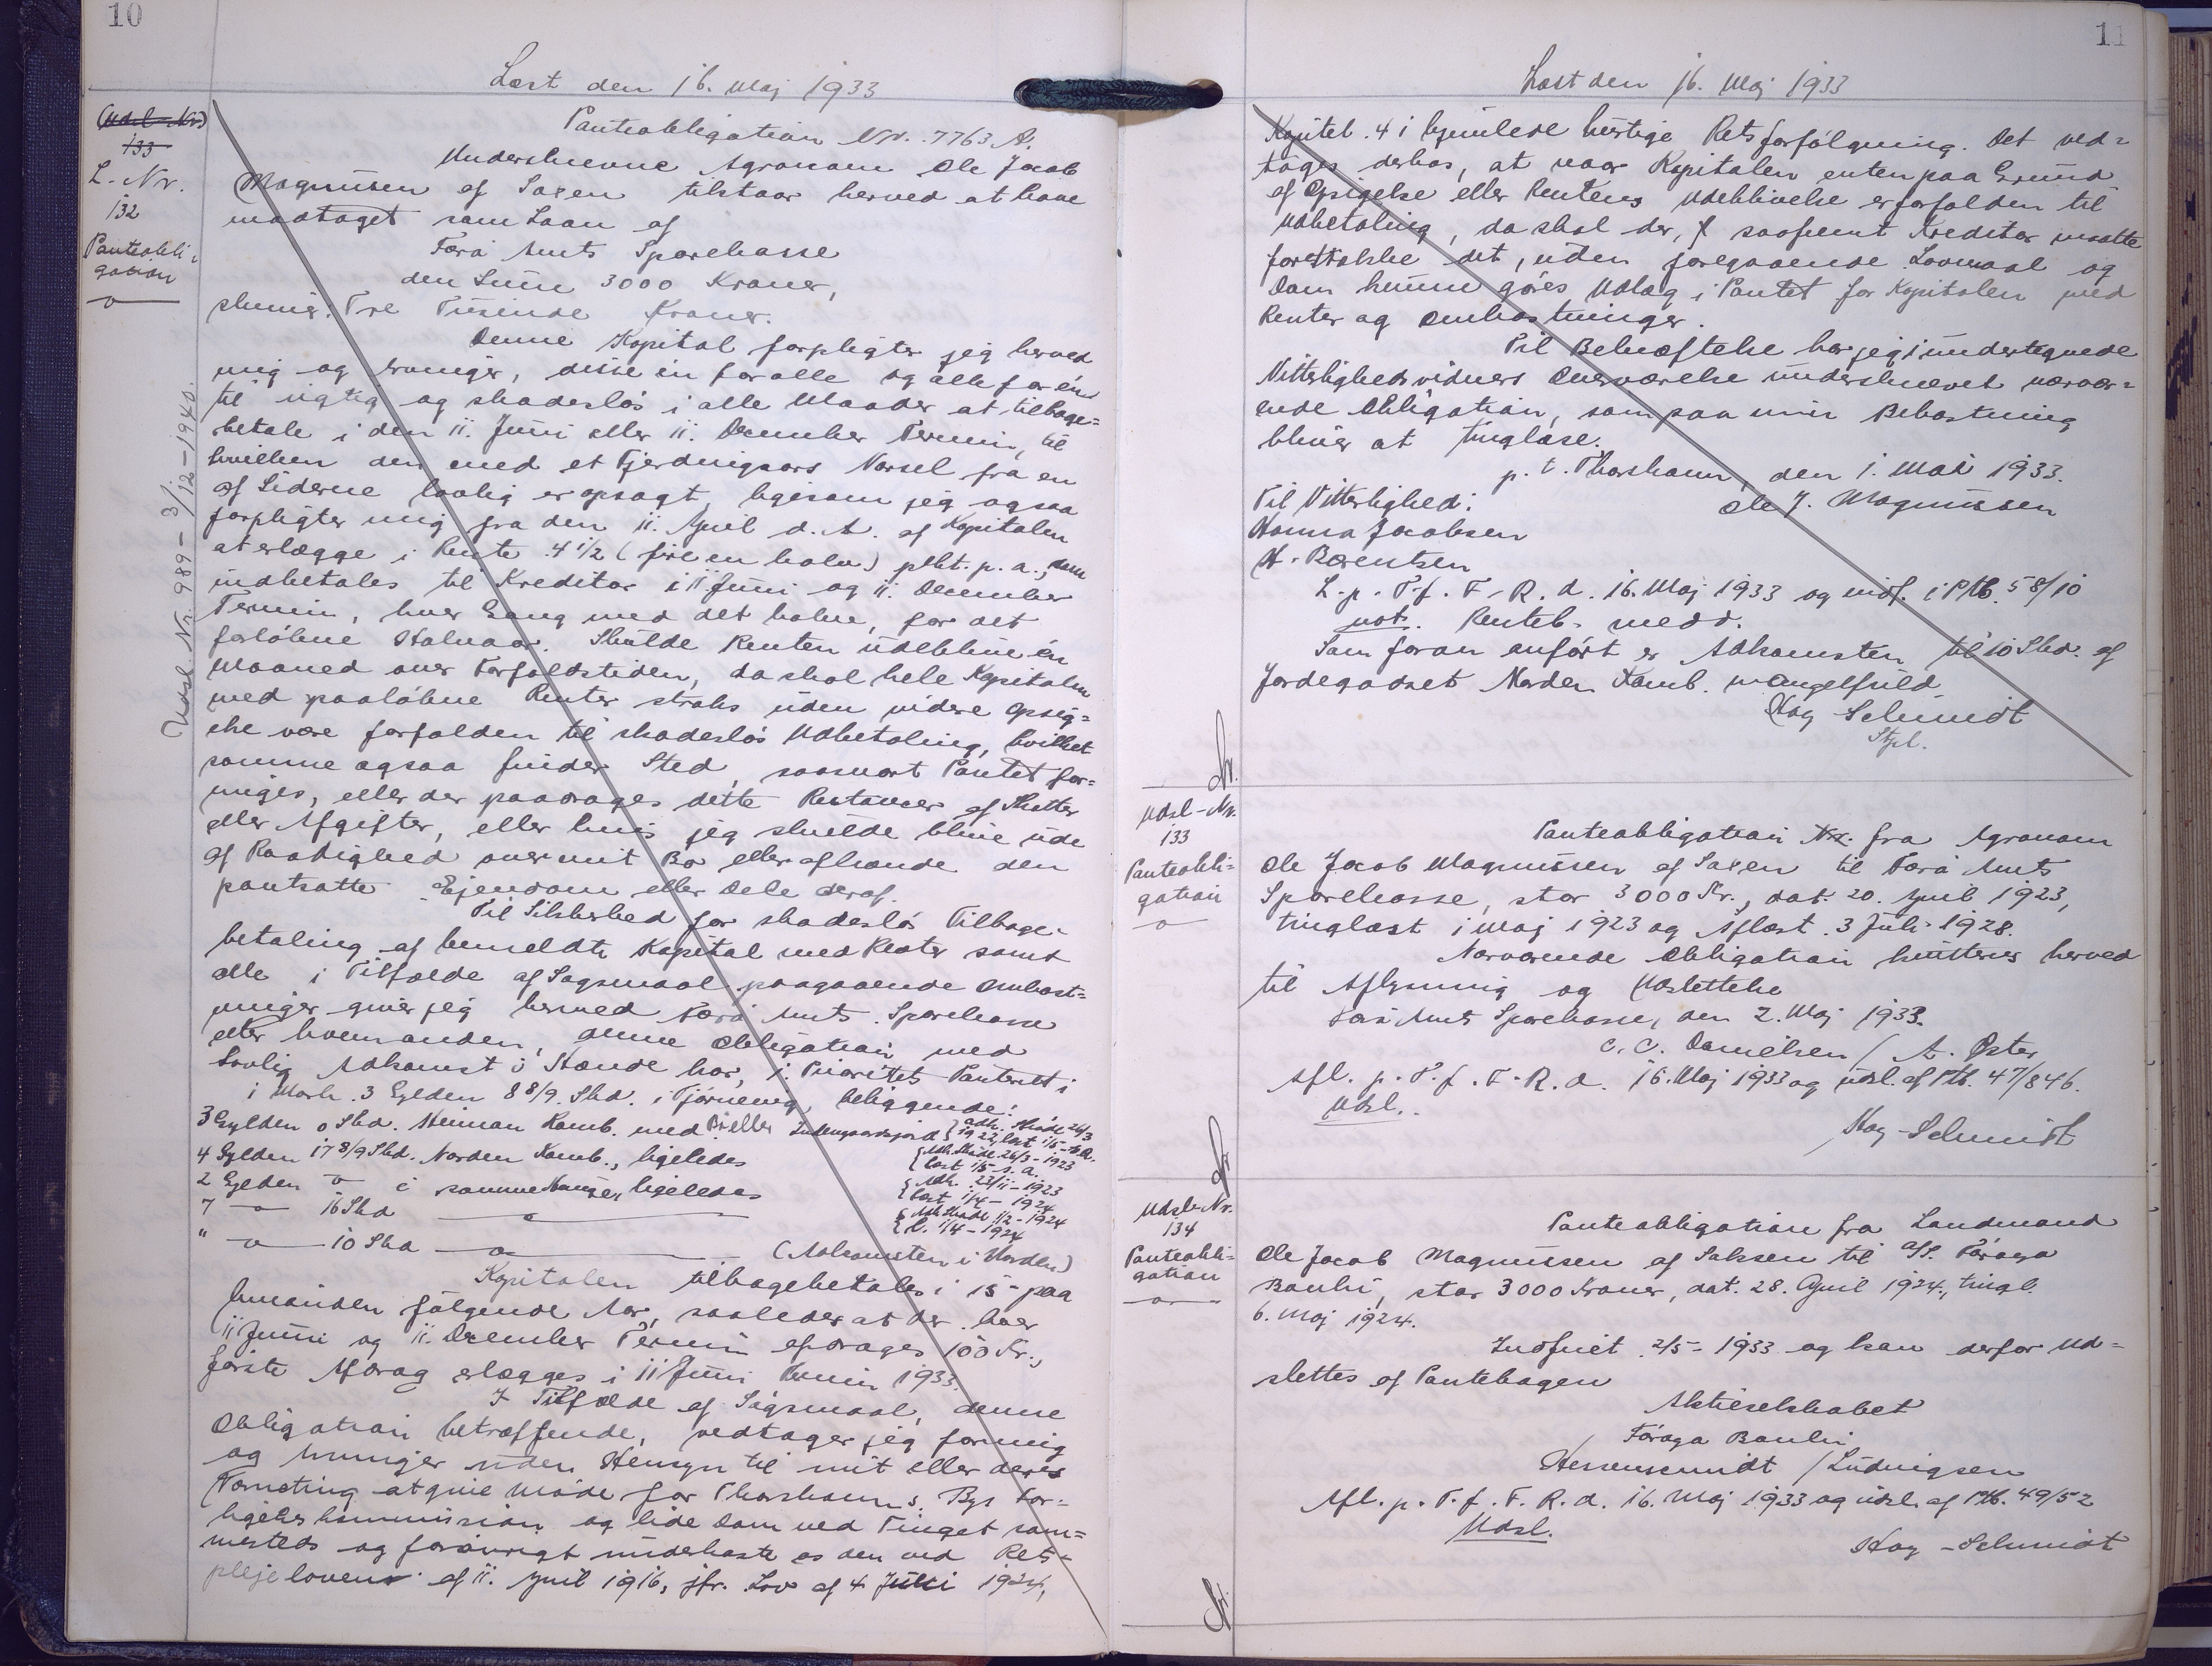 10
Læst den 16. Maj 1933
(Udsl-Nr)
133
L. Nr.
132
Panteobli-
gation
Udsl. Nr. 989 - 3/12 - 1940.
Panteobligation Nr. 7763 A.
Underskrevne Agronom Ole Jacob
Magnussen af Saxen tilstaar herved at have
modtaget som Laan af
Færø Amts Sparekasse
den Sum 3000 Kroner,
skriver: Tre Tusinde Kroner.
Denne Kapital forpligter jeg herved
mig og Arvinger, disse en for alle og alle for én
til rigtig og skadesløs i alle Maader at tilbage-
betale i den 11. Juni eller 11. December Termin, til
hvilken den med et Fjerdingaars Varsel fra en
af Siderne lovlig er opsagt, ligesom jeg ogsaa
forpligter mig fra den 11. April d. A. af Kapitalen
at erlægge i Rente 4 1/2 (fire en halv) pCt. p. a., som
indbetales til Kreditor i 11 Juni og 11. December
Termin, hver Gang med det halve, for det
forløbne Halvaar. Skulde Renten udeblive én
Maaned over Forfaldstiden, da skal hele Kapitalen
med paaløbne Renter straks uden videre Opsig-
else være forfalden til skadesløs Udbetaling, hvilket
samme ogsaa finder Sted, saasnart Pantet for-
ringes, eller der paadrages dette Restancer af Skatter
eller Afgifter, eller hvis jeg skulde blive ude
af Raadighed over mit Bo eller afhænde den
pantsatte Ejendom eller Dele deraf.
Til Sikkerhed for skadesløs Tilbage-
betaling af bemeldte Kapital med Renter samt
alle i Tilfælde af Sagsmaal paagaaende Omkost-
ninger giver jeg herved Færø Amts Sparekasse
eller hvem anden, denne Obligation med
lovlig Adkomst i Hænde har, 1. Prioritets Panteret i
i Mark. 3 Gylden 8 8/9. Skd. i Tjørnenig, beliggende:
3 Gylden 0 Skd. Heiman Kamb. med Bø eller Indengaardsjord { Adk. Skøde 26/3
1922, læst 1/5 - s. A.
4 Gylden 17 8/9 Skd. Norden Kamb., ligeledes { Adk. Skøde 26/3 - 1923
læst 1/5 - s. a.
2 Gylden " i samme Hauger ligeledes { Adk. 23/11 - 1923
læst 1/4 - 1924
7 — " — 16 Skd — " — { Adk Skøde 1/2 - 1924
L. 1/4 - 1924
" — " — 10 Skd — " — (Adkomsten i Norden)
Kapitalen tilbagebetales i 15 - paa
hinanden følgende Aar, saaledes at der hver
11 Juni og 11. December Termin afdrages 100 Kr.,
første Afdrag erlægges i 11 Juni Termin 1933.
I Tilfælde af Sagsmaal, denne
Obligation betræffende, vedtager jeg for mig
og Arvinger uden Hensyn til mit eller deres
Værneting at give Møde for Thorshavns Bys For-
ligelseskommission og lide Dom ved Tinget sam-
mesteds og forøvrigt underkaste os den ved Rets-
plejeloven af 11. April 1916, jfr. Lov af 4 Juli 1924,
11
Læst den 16. Maj 1933
Kapitel. 4 i hjemlede hurtige Retsforfølgning. Det ved-
tages derhos, at naar Kapitalen enten paa Grund
af Opsigelse eller Rentens Udeblivelse er forfalden til
Udbetaling, da skal der, saafremt Kreditor maatte
foretrække det, uden foregaaende Lovmaal og
Dom kunne gøres Udlæg i Pantet for Kapitalen med
Renter og Omkostninger.
Til Bekræftelse har jeg i undertegnede
Vitterlighedsvidners Overværelse underskrevet nærvær-
ende Obligation, som paa min Bekostning
bliver at tinglæse.
p. t. Thorshavn, den 1. Mai 1933.
Til Vitterlighed: Ole J. Magnussen
Hanna Jacobsen
H. Bærentsen
L. p. T. f. F. R. d. 16. Maj 1933 og indf. i Ptb. 58/10
not. Renteb. medd.
Som foran anført er Adkomsten til 10 Skd. af
Jordegodset Norden Kamb. mangelfuld.
Høg Schmidt
Stpl.
Udsl-Nr.
133
Panteobli-
gation
Panteobligation fra Agronom
Ole Jacob Magnussen af Saxen til Færø Amts
Sparekasse, stor 3000 Kr., dat. 20. April 1923,
tinglæst 1 Maj 1923 og Aflæst. 3 Juli 1928.
Nærværende Obligation kvitteres herved
til Aflysning og Udslettelse
Færø Amts Sparekasse, den 2. Maj 1933.
C. C. Danielsen / A. Øster
Afl. p. T. f. F. R. d. 16. Maj 1933 og udsl. af Ptb. 47/846.
Udsl.
Høg-Schmidt
Udsl-Nr.
134
Panteobli-
gation
Panteobligation fra Landmand
Ole Jacob Magnussen af Saksen til A/S. Føroya
Banki, stor 3000 Kroner, dat. 28. April 1924, tingl.
6. Maj 1924.
Indfriet 2/5 - 1933 og kan derfor Ud-
slettes af Pantebogen
Aktieselskabet
Føroya Banki
/ Ludvigsen
Afl. p. T. f. F. R. d. 16. Maj 1933 og udsl. af Ptb. 49/52
Udsl.
Høg-Schmidt